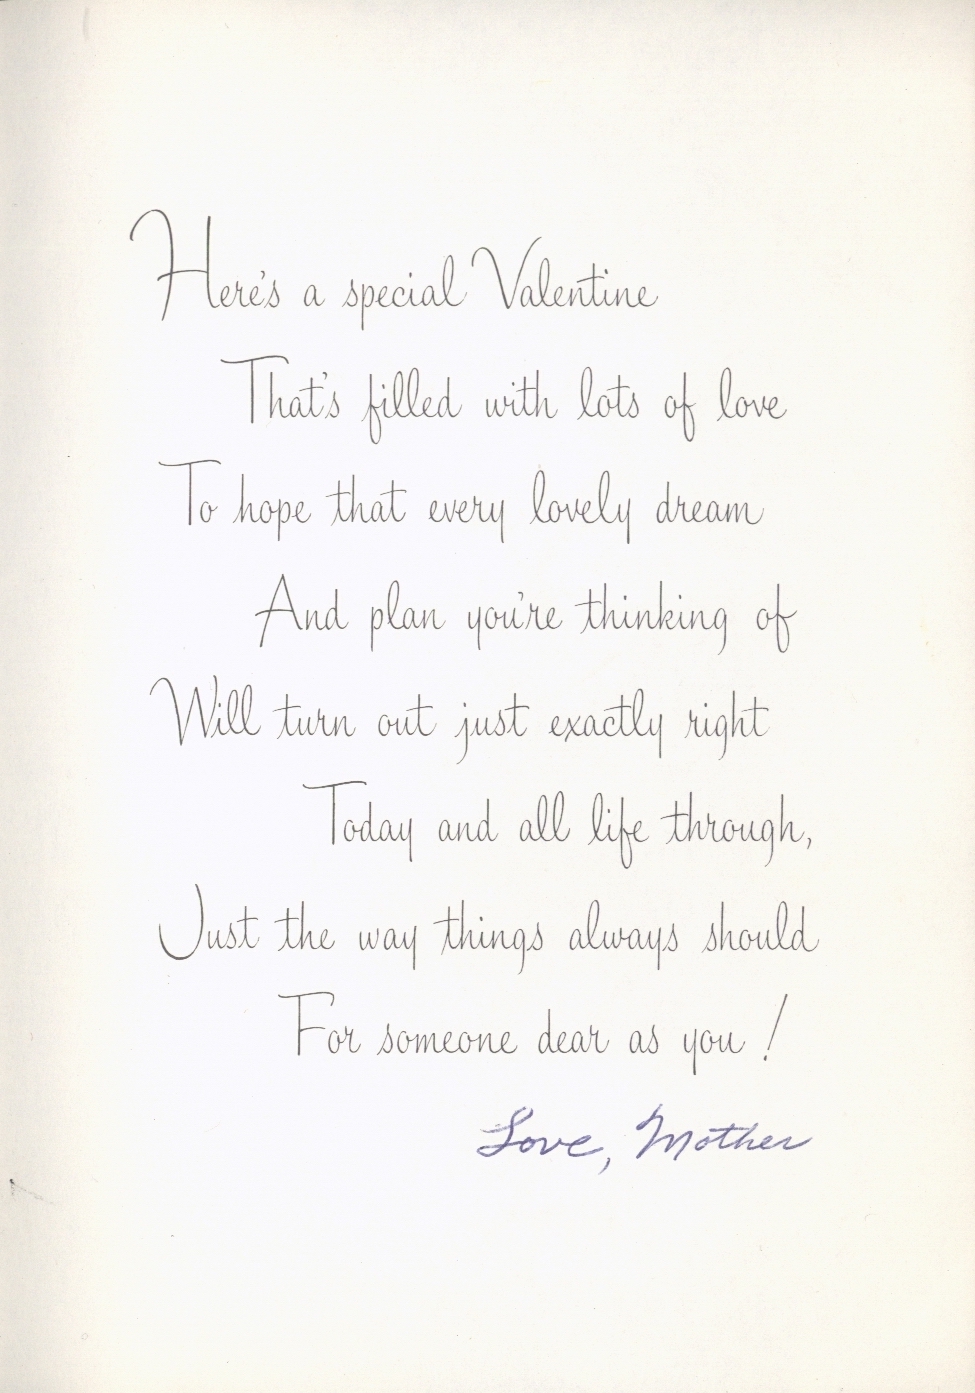 Here's a special Valentine
That's filled with lots of love
To hope that every lovely dream
And plan you're thinking of
Will turn out just exactly right
Today and all life through,
Just the way things always should
For someone dear as you!
Love, Mother